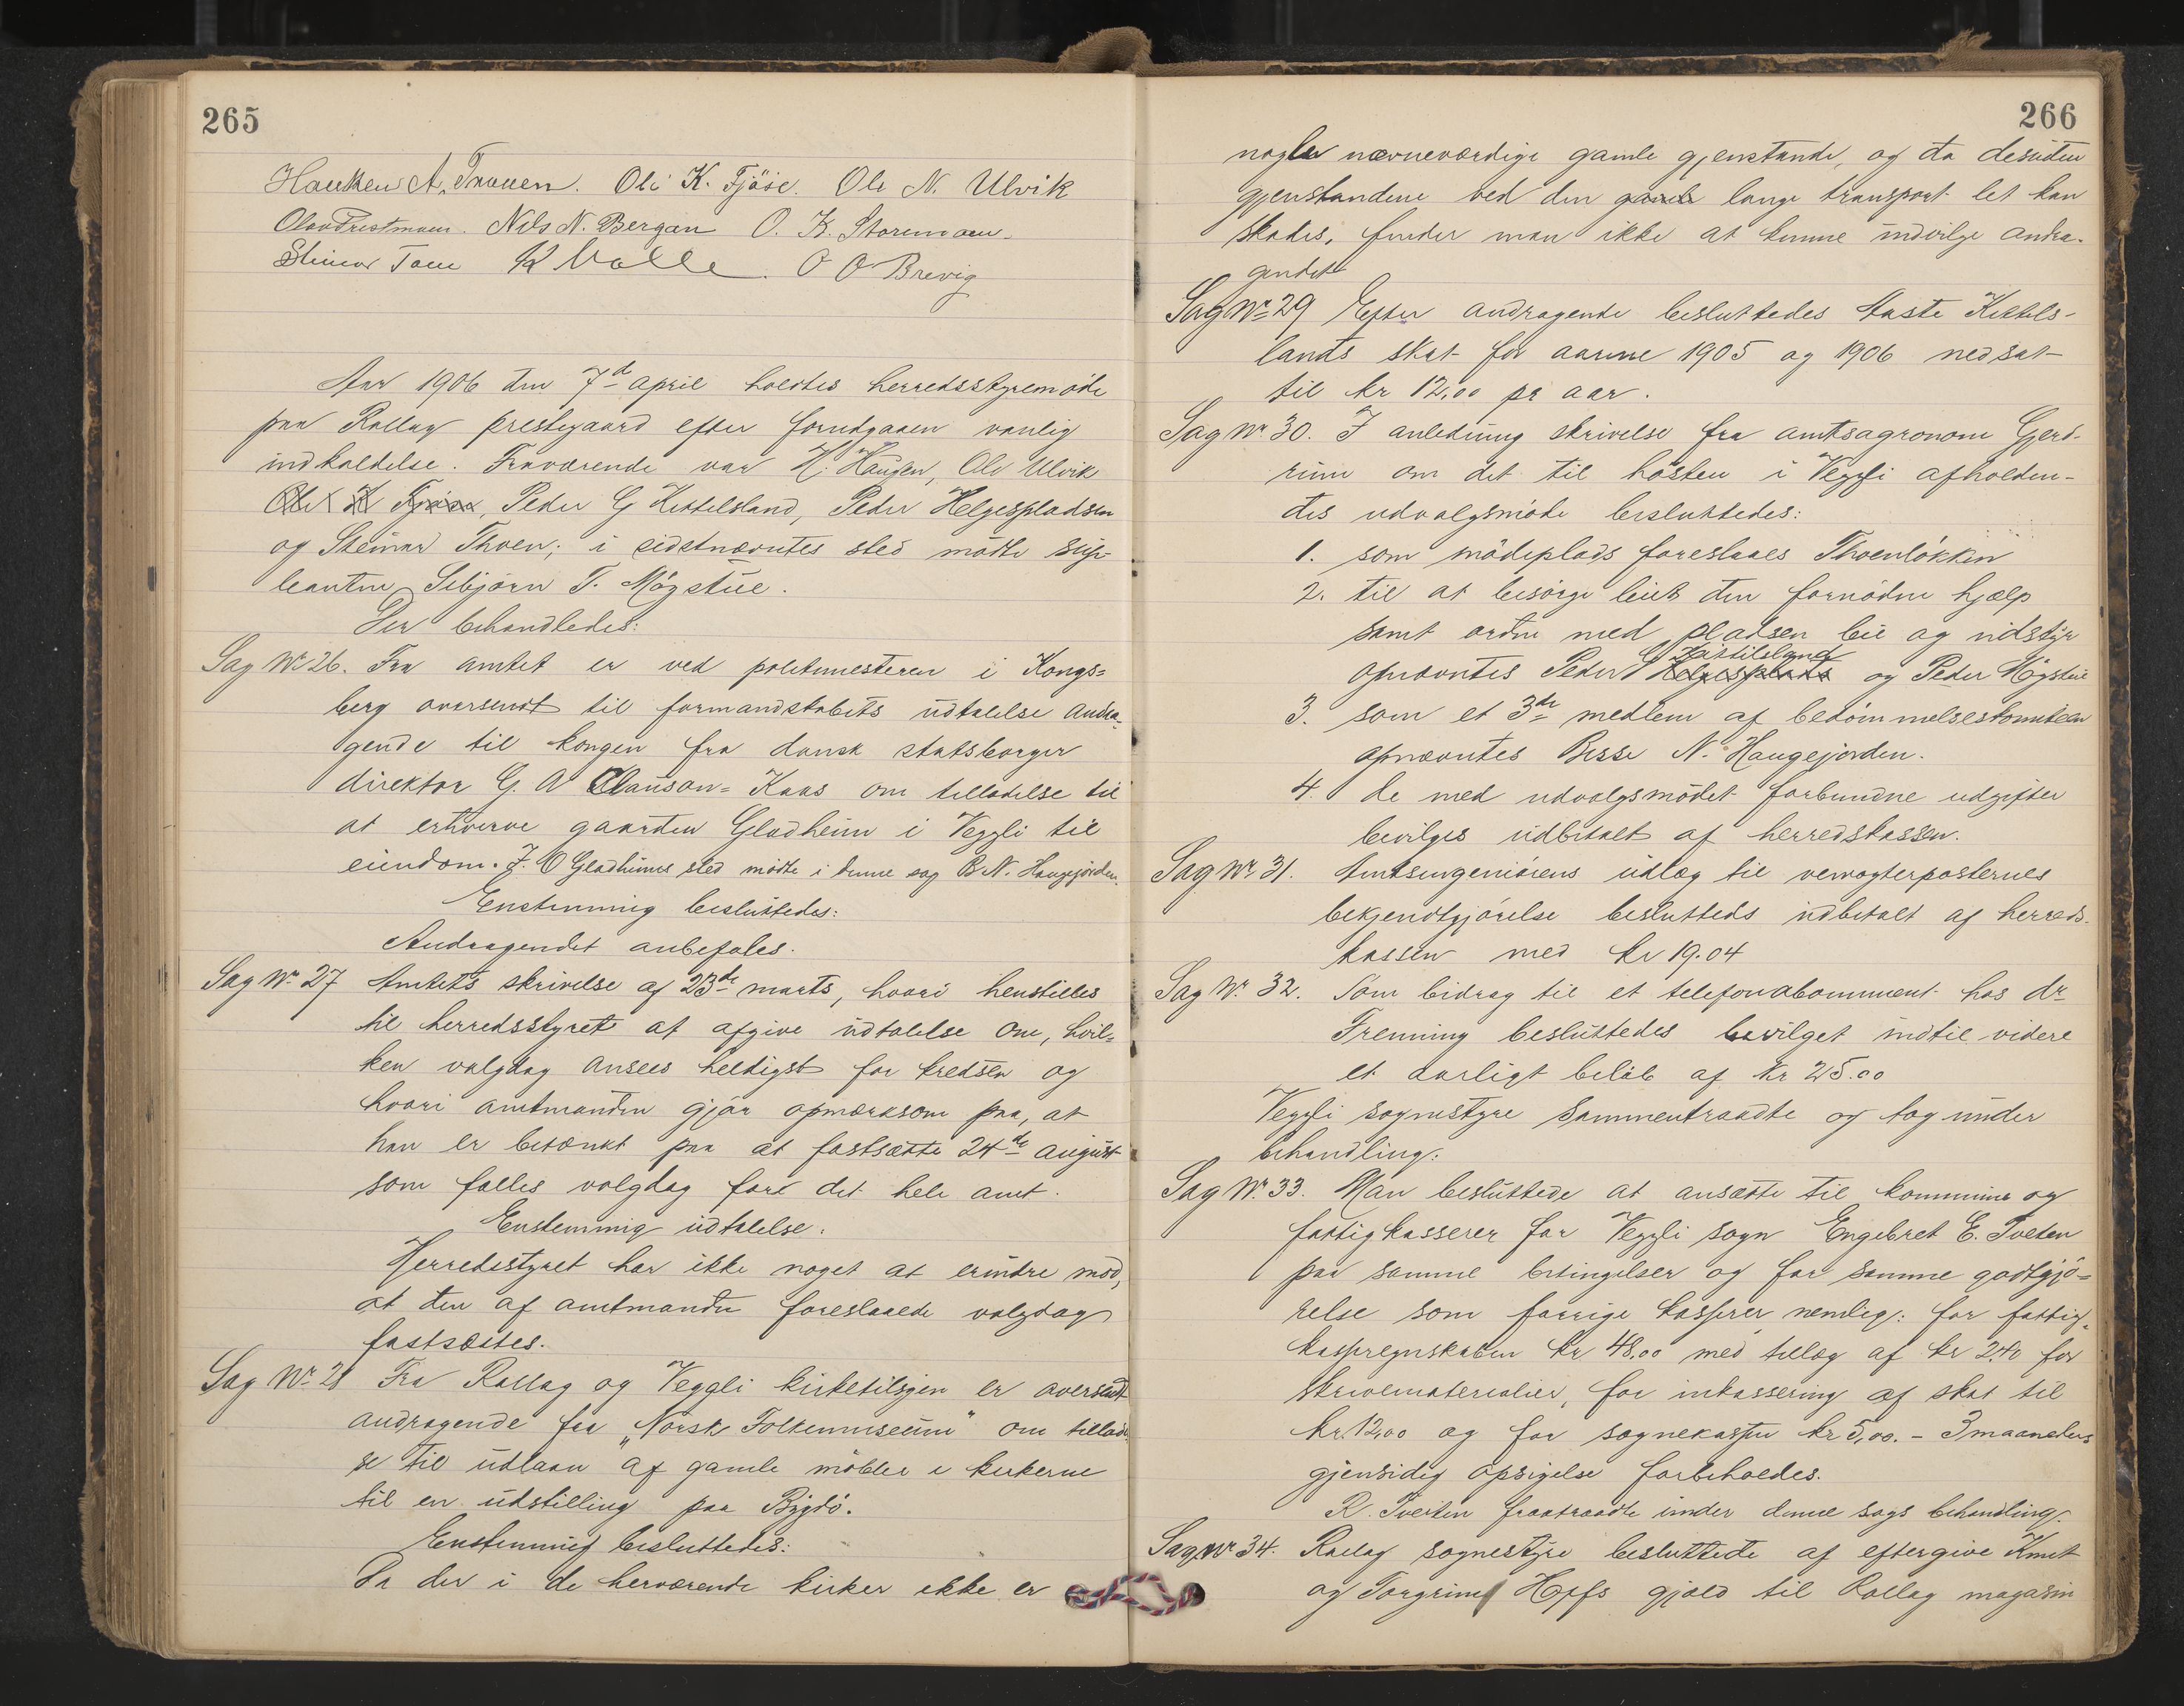 265
Haaken A. Traaen. Ole K. Fjøse. Ole N. Ulvik
Olav Prestmoen. Nils N. Bergan O. K. Storemoen.
Steinar Toen K Valle. O O Brevig
Aar 1906 den 7de april holdtes herredsstyremøde
paa Rollag prestegaard efter forudgaaen vanlig
indkaldelse. Fraværende var H. Haugen, Ole Ulvik
Ole K Fjøse, Peder G Kettelsland, Peder Helgespladsen
og Steinar Thoen; i sidstnævntes sted mødte sup-
leanten Sebjørn T. Møgstue.
Der behandledes:
Sag Nr 26. Fra amtet er ved politimesteren i Kongs=
berg oversendt til formandskabets udtalelse andra-
gende til kongen fra dansk statsborger
direktør G. A Clauson=Kaas om tilladelse til
at erhverve gaarden Gladheim i Veggli til
eiendom. J. O Gladheims sted mødte i denne sag B N. Haugejorden.
Enstemmig besluttedes:
Andragendet anbefales.
Sag Nr 27 Amtets skrivelse af 23de marts, hvori henstilles
til herredsstyret at afgive udtalelse om, hvil=
ken valgdag ansees heldigst for kredsen og
hvori amtmanden gjør opmærksom paa, at
han er betænkt paa at fastsætte 24de august
som fælles valgdag for det hele amt.
Enstemmig udtalelse:
Herredsstyret har ikke noget at erindre mod,
at den af amtmanden foreslaaede valgdag
fastsættes.
Sag Nr 28 Fra Rollag og Veggli kirketilsyn er oversendt
andragende fra „Norsk Folkemuseum" om tilladel
se til udlaan af gamle møbler i kirkerne
til en udstilling paa Bygdø.
Enstemmig besluttedes:
Da der i de herværende kirker ikke er
266
nogle nævneværdige gamle gjenstande, og da desuden
gjenstandene ved den gamle lange transport let kan
skades, finder man ikke at kunne indvilge andra-
gendet
Sag Nr 29 Efter andragende besluttedes Aaste Kettels-
lands skat for aarene 1905 og 1906 nedsat
til kr 12,00 pr aar.
Sag Nr 30. I anledning skrivelse fra amtsagronom Gjerd-
rum om det til høsten i Veggli afholden-
des udvalgsmøde besluttedes:
1. som mødeplads foreslaaes Thoenløkken
2. til at besørge leiet den fornødne hjælp
samt ordne med pladsen leie og udstyr
Kittilsland
opnævntes Peder Helgesplads og Peder Møgstue
3. som et 3de medlem af bedømmelseskomiteen
opnævntes Besse N. Haugejorden.
4. De med udvalgsmødet forbundne udgifter
bevilges udbetalt af herredskassen.
Sag Nr 31. Amtsingeniørens udlæg til veivogterposternes
bekjendtgjørelse besluttedes udbetalt af herreds-
kassen med kr 19.04
Sag Nr 32. Som bidrag til et telefonabonnement hos dr
Frenning besluttedes bevilget indtil videre
et aarligt beløb af kr 25.00
Veggli sognestyre sammentraadte og tog under
behandling:
Sag Nr 33. Man besluttede at ansætte til kommune og
fattigkasserer for Veggli sogn Engebret E. Tveten
paa samme betingelser og for samme godtgjø=
relse som forrige kasserer nemlig: for fattig-
kasseregnskaben kr 48,00 med tillæg af kr 2,40 for
skrivematerialier, for inkassering af skat til
kr. 12,00 og for sognekassen kr 5,00. - 3 maaneders
gjensidig opsigelse forbeholdes.
R. Tveten fratraadte under denne sags behandling.
Sag Nr 34. Rollag sognestyre besluttede af eftergive Knut
og Torgrim Hoffs gjæld til Rollag magasin